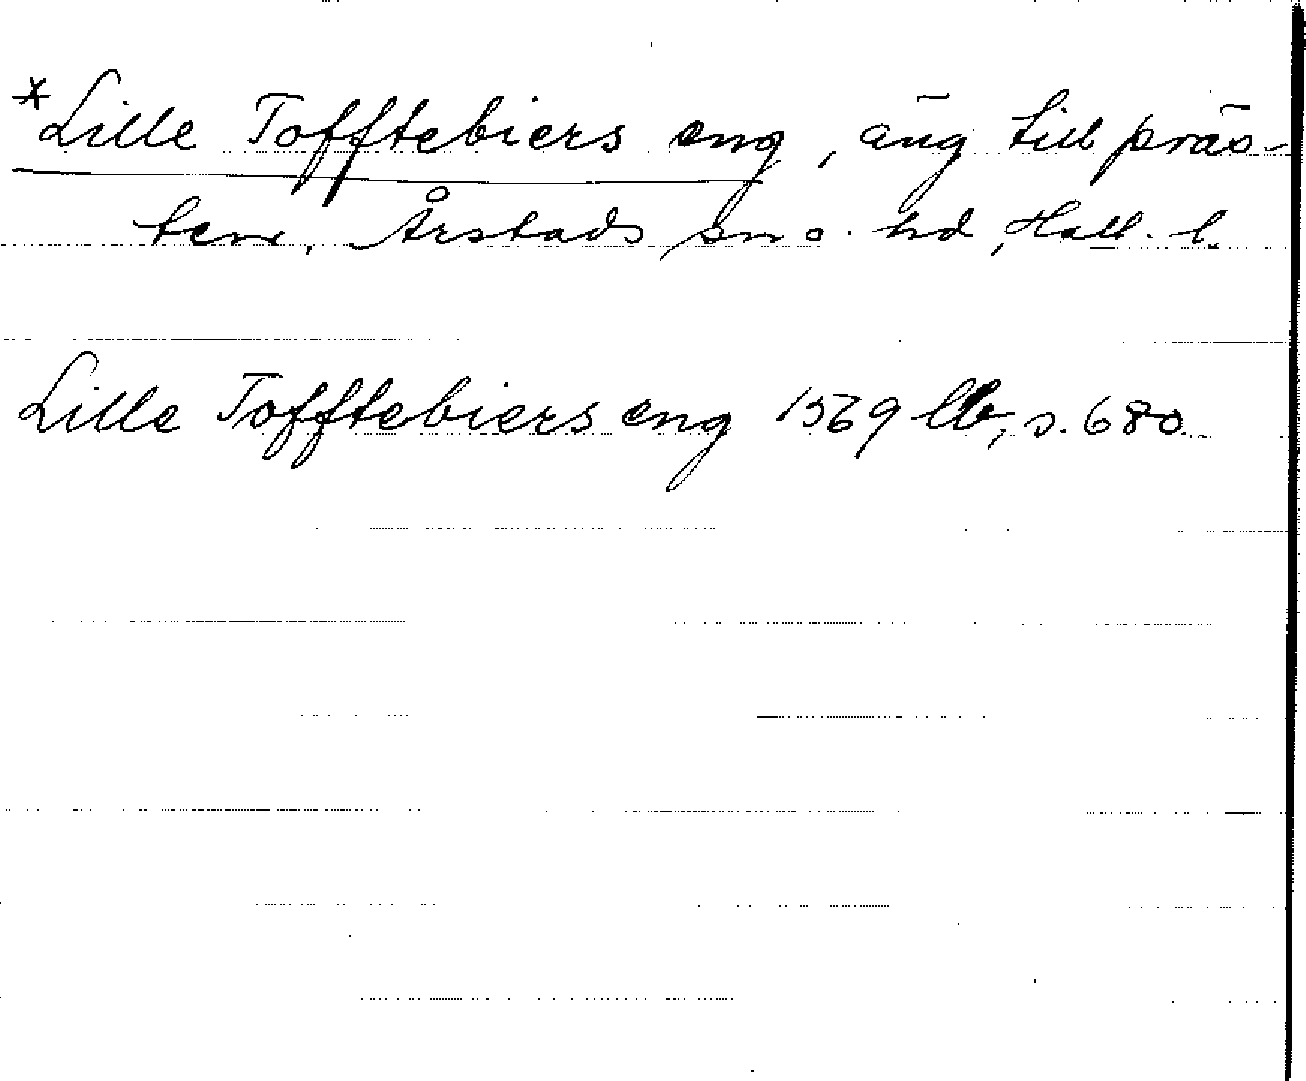 *Lille Tofftebiers eng, äng till präs-
ten, Årstads sn o. hd, Hall. l.
Lille Tofftebiers eng 1569 llb, s. 680